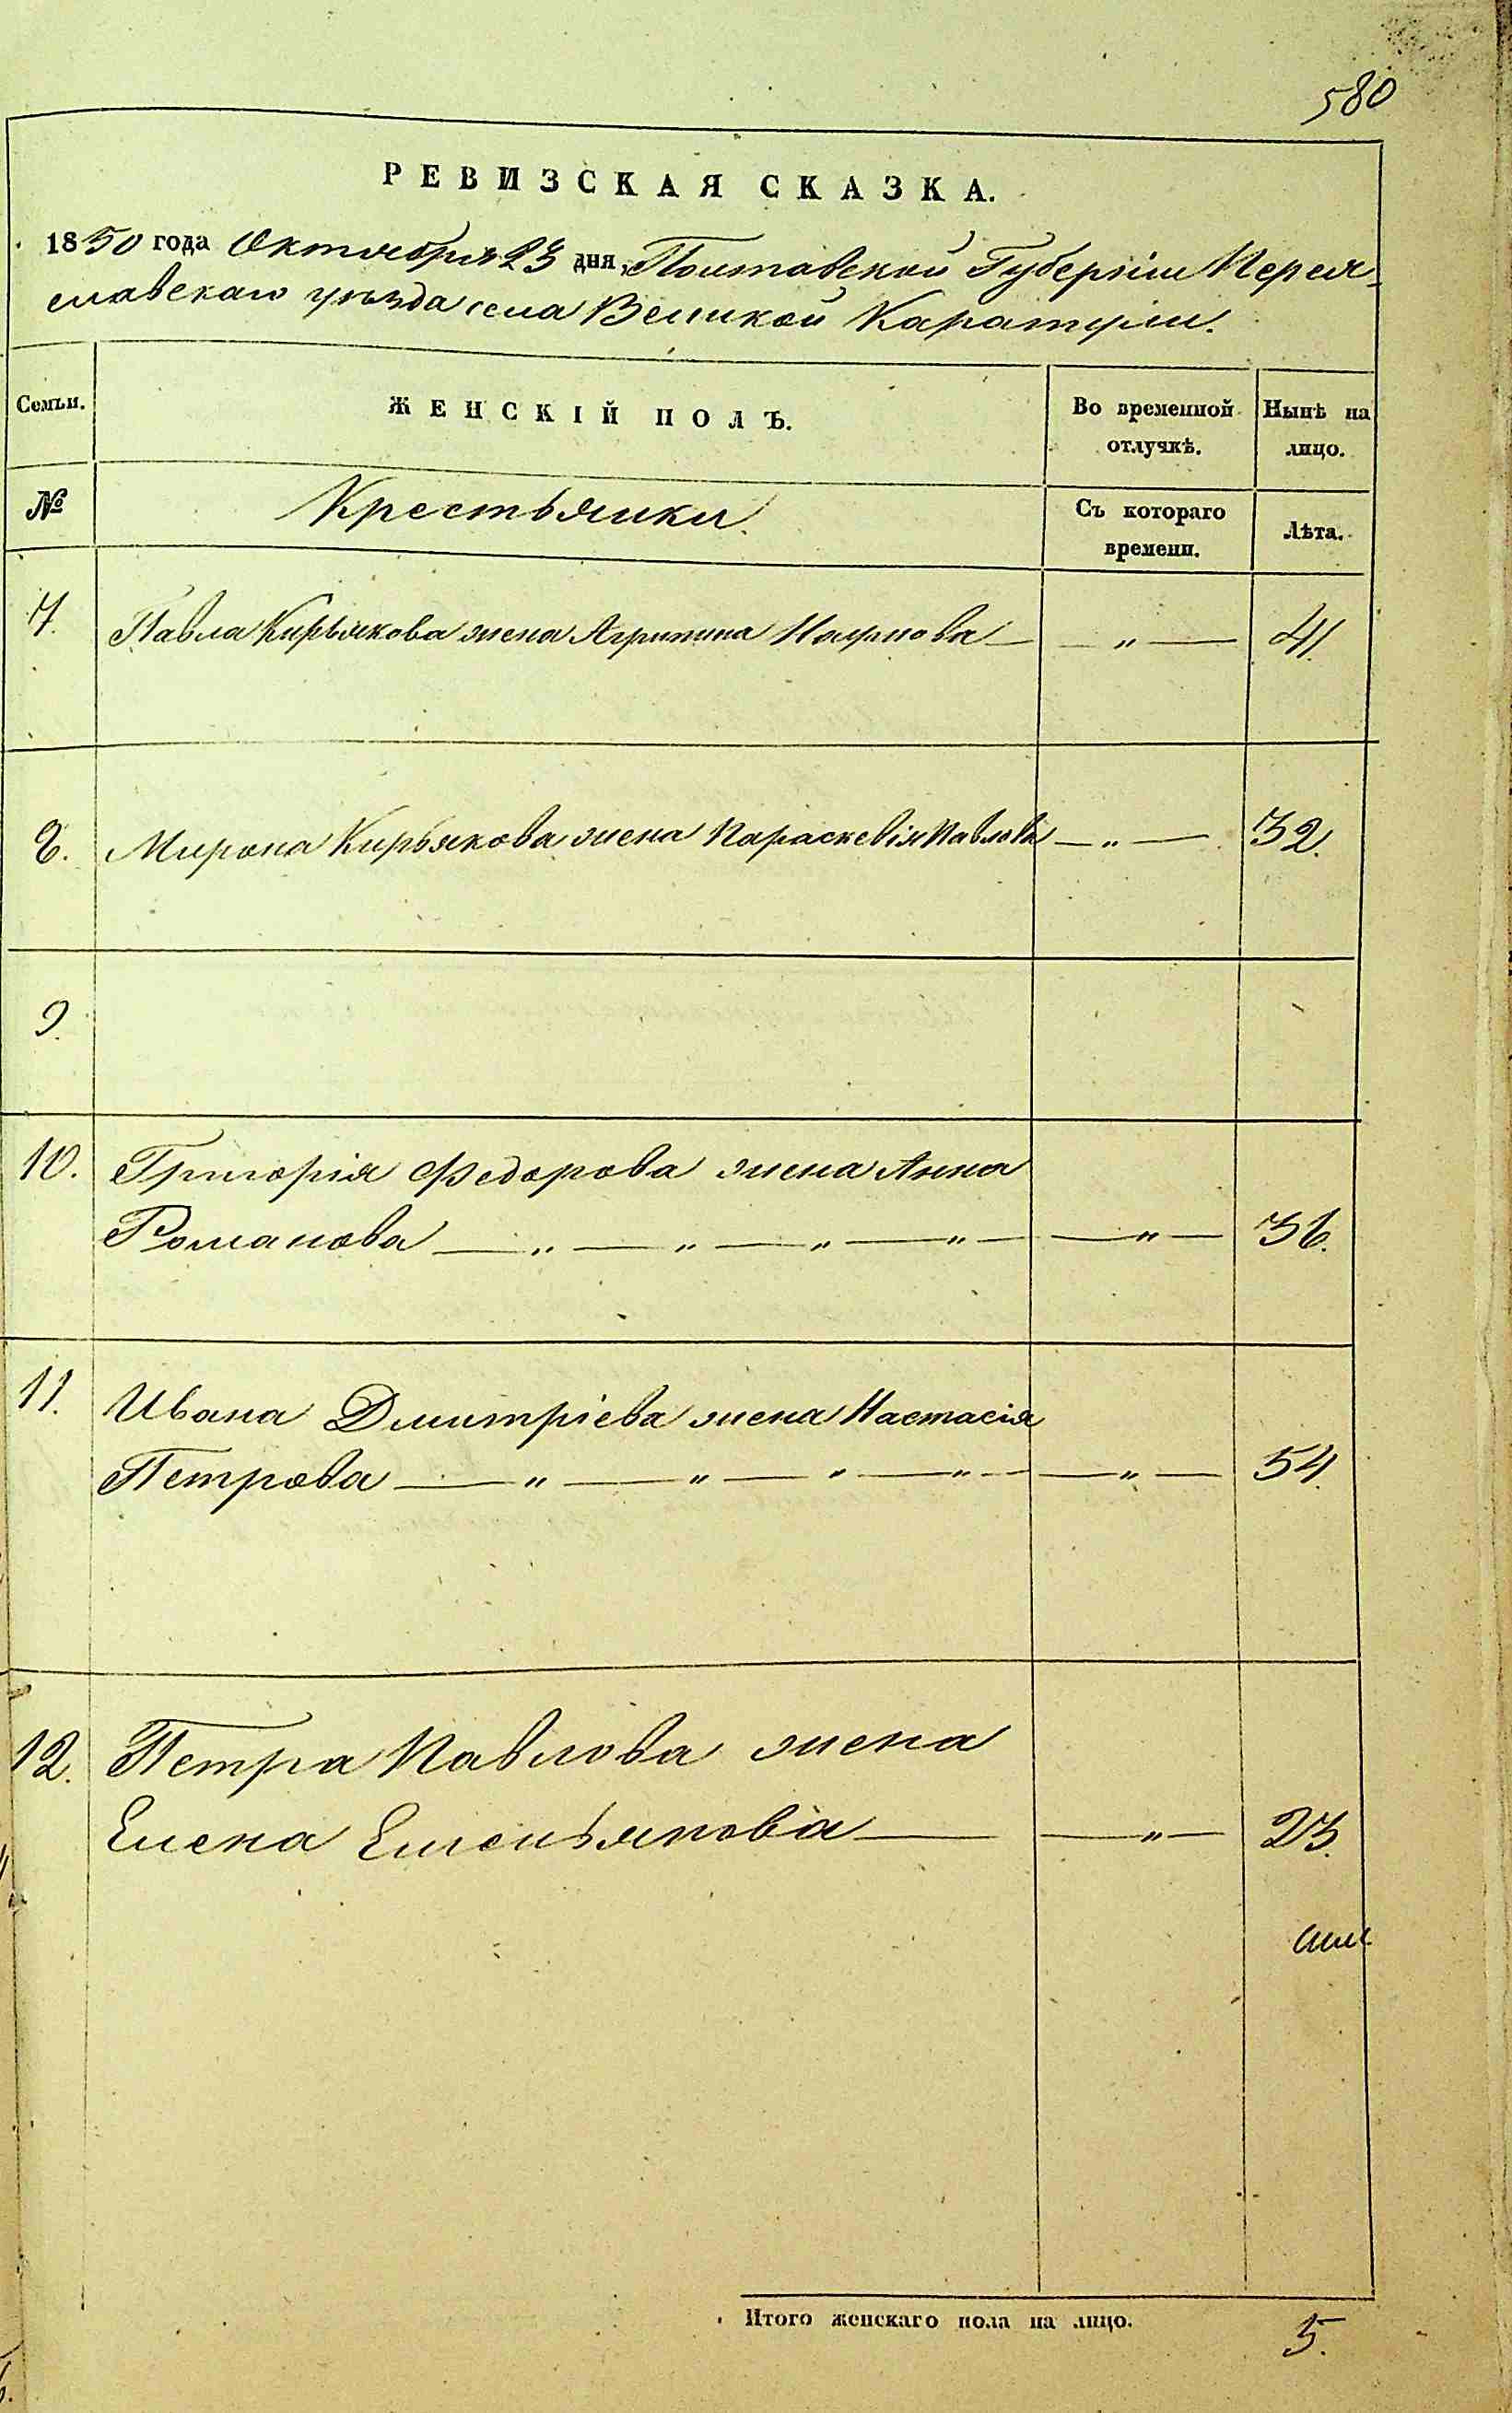 580
РЕВИЗСКАЯ СКАЗКА.
1850 года Октября 23 дня, Полтавской Губерніи Перея-
славскаго уѣзда села Великой Каратули.
Семьи. ЖЕНСКІЙ ПОЛЪ. Во временной отлучкѣ. Нынѣ на лицо.
№ Крестьянки. Съ котораго времени. Лѣта.
7. Павла Кирьякова жена Агрипина Наумова — — „ — 41.
8. Мирона Кирьякова жена Параскевія Павлова — „ — 32.
9.
10. Григорія Федорова жена Анна
Романова — „ — „ — „ — „ — — „ — 36.
11. Ивана Дмитріева жена Настасія
Петрова — „ — „ — „ — „ — — „ — 54.
12. Петра Павлова жена
Елена Емельянова — — „ — 23.
Итого женскаго пола на лицо. 5.